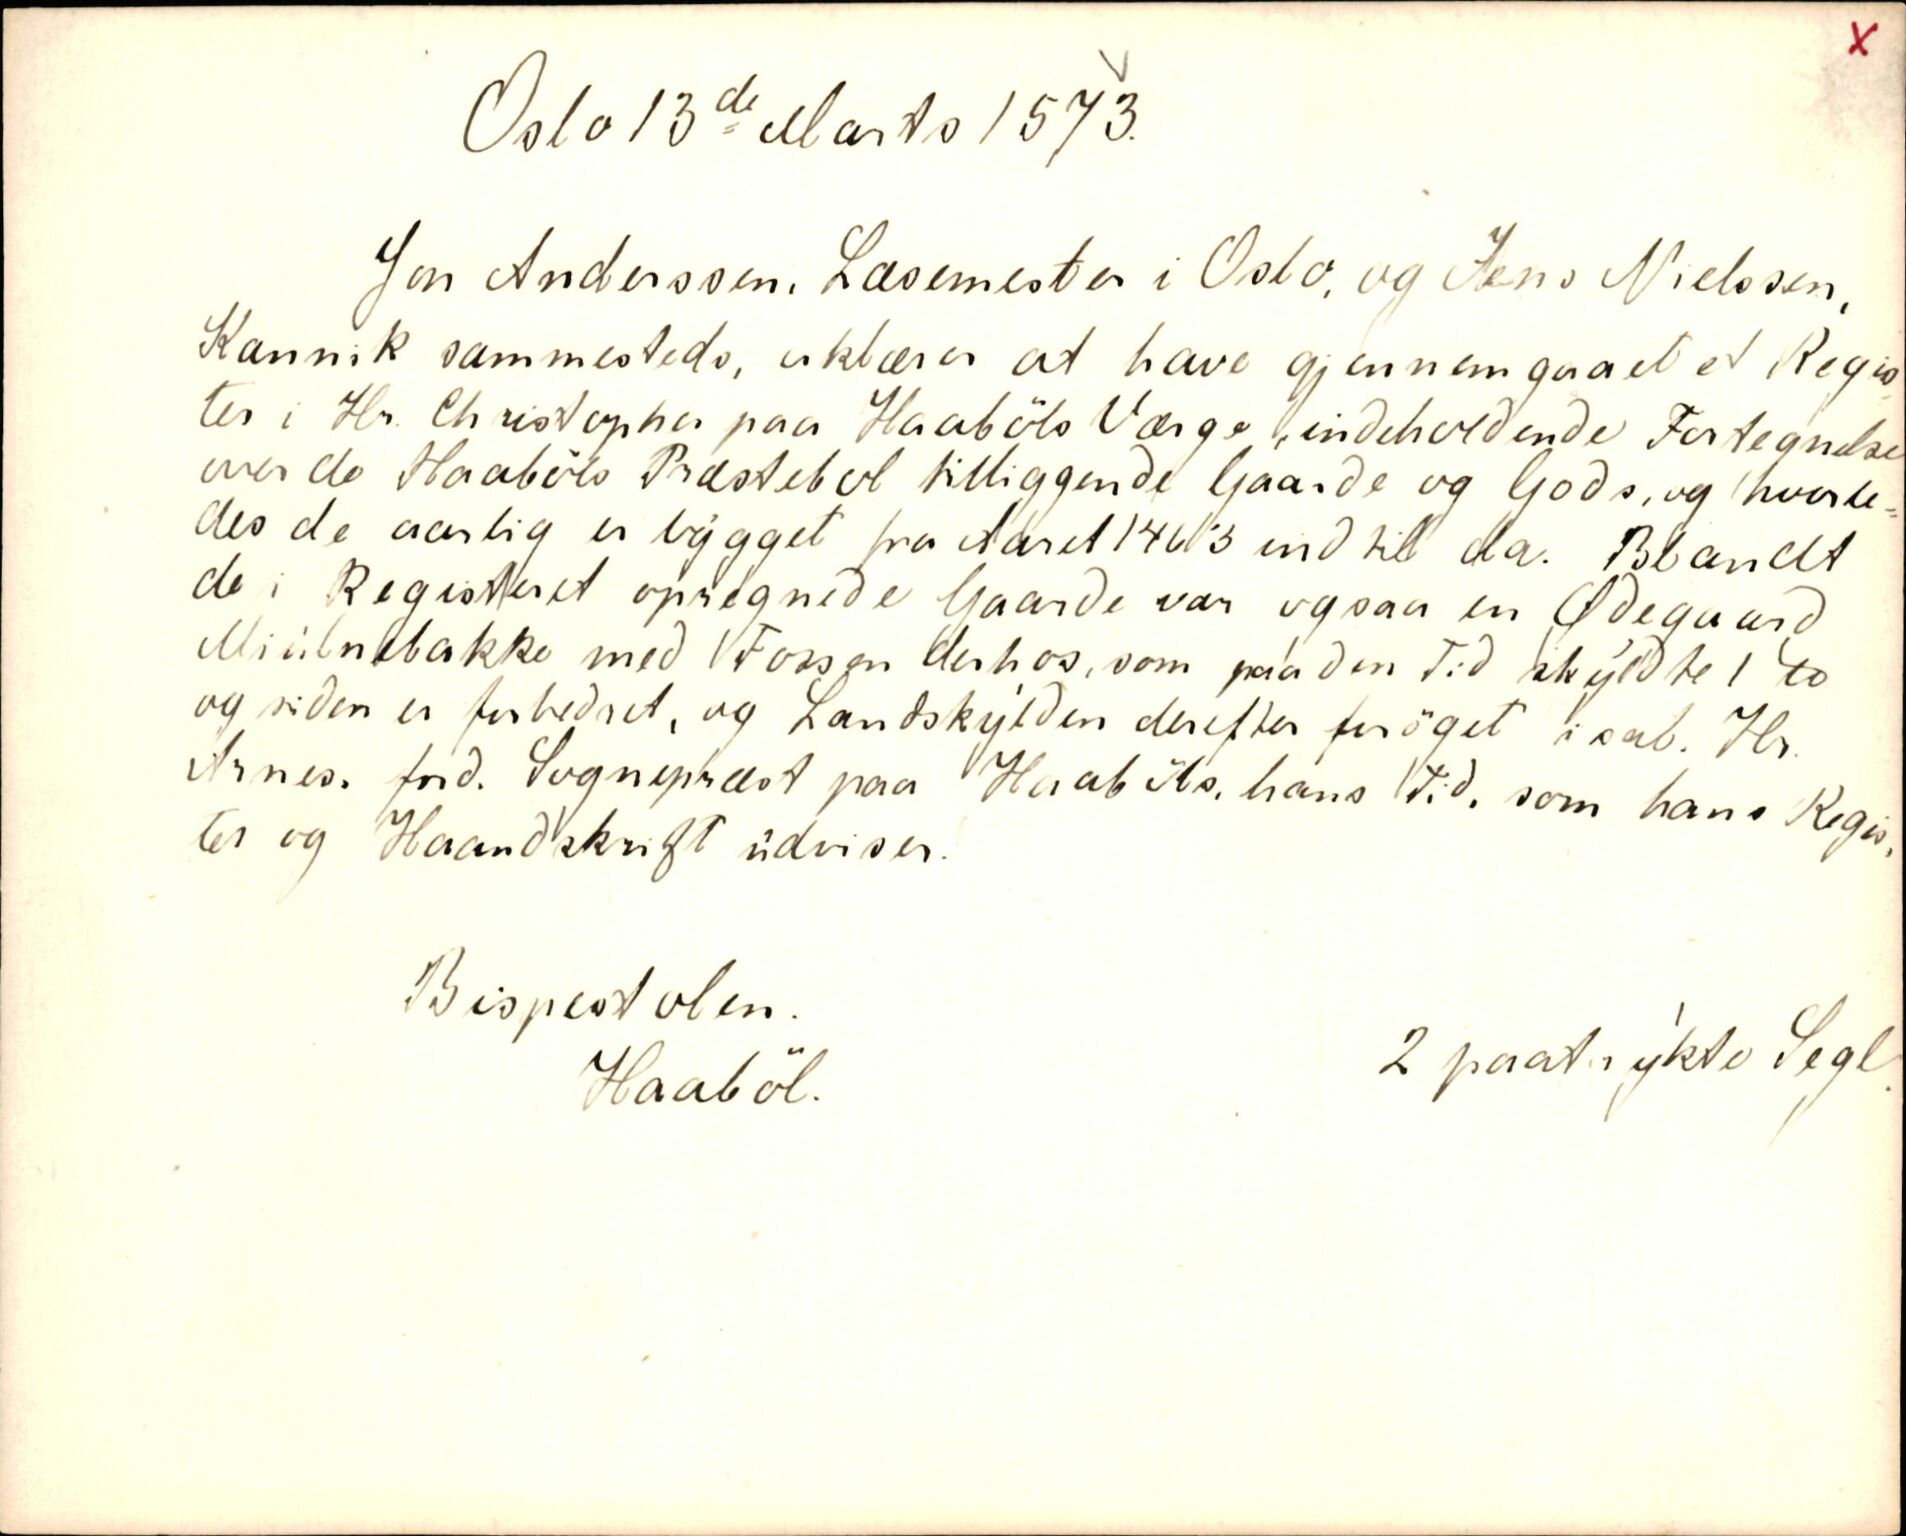 x
Oslo 13de Marts 1573.
Jon Anderssen, Læsemester i Oslo, og Jens Nielssen,
Kannik sammesteds, erklærer at have gjennemgaaet et Regis-
ter i Hr. Christopher paa Haaböls Værge, indeholdende Fortegnelse
over de Haaböls Præstebol tilliggende Gaarde og Gods, og hvorle=
des de aarlig er bygget fra Aaret 1463 indtil da. Blandt
de i Registeret opregnede Gaarde var ogsaa en Ødegaard
Miülnebakke med Fossen derhos, som paa den Tid skyldte 1
og siden er forbedret, og Landskylden derefter foröget i sal. Hr.
Arnes, ford. Sognepræst paa Haaböls, hans Tid, som hans Regis-
ter og Haandskrift udviser.
Bispestolen.
Haaböl.
2 paatrykte Segl.